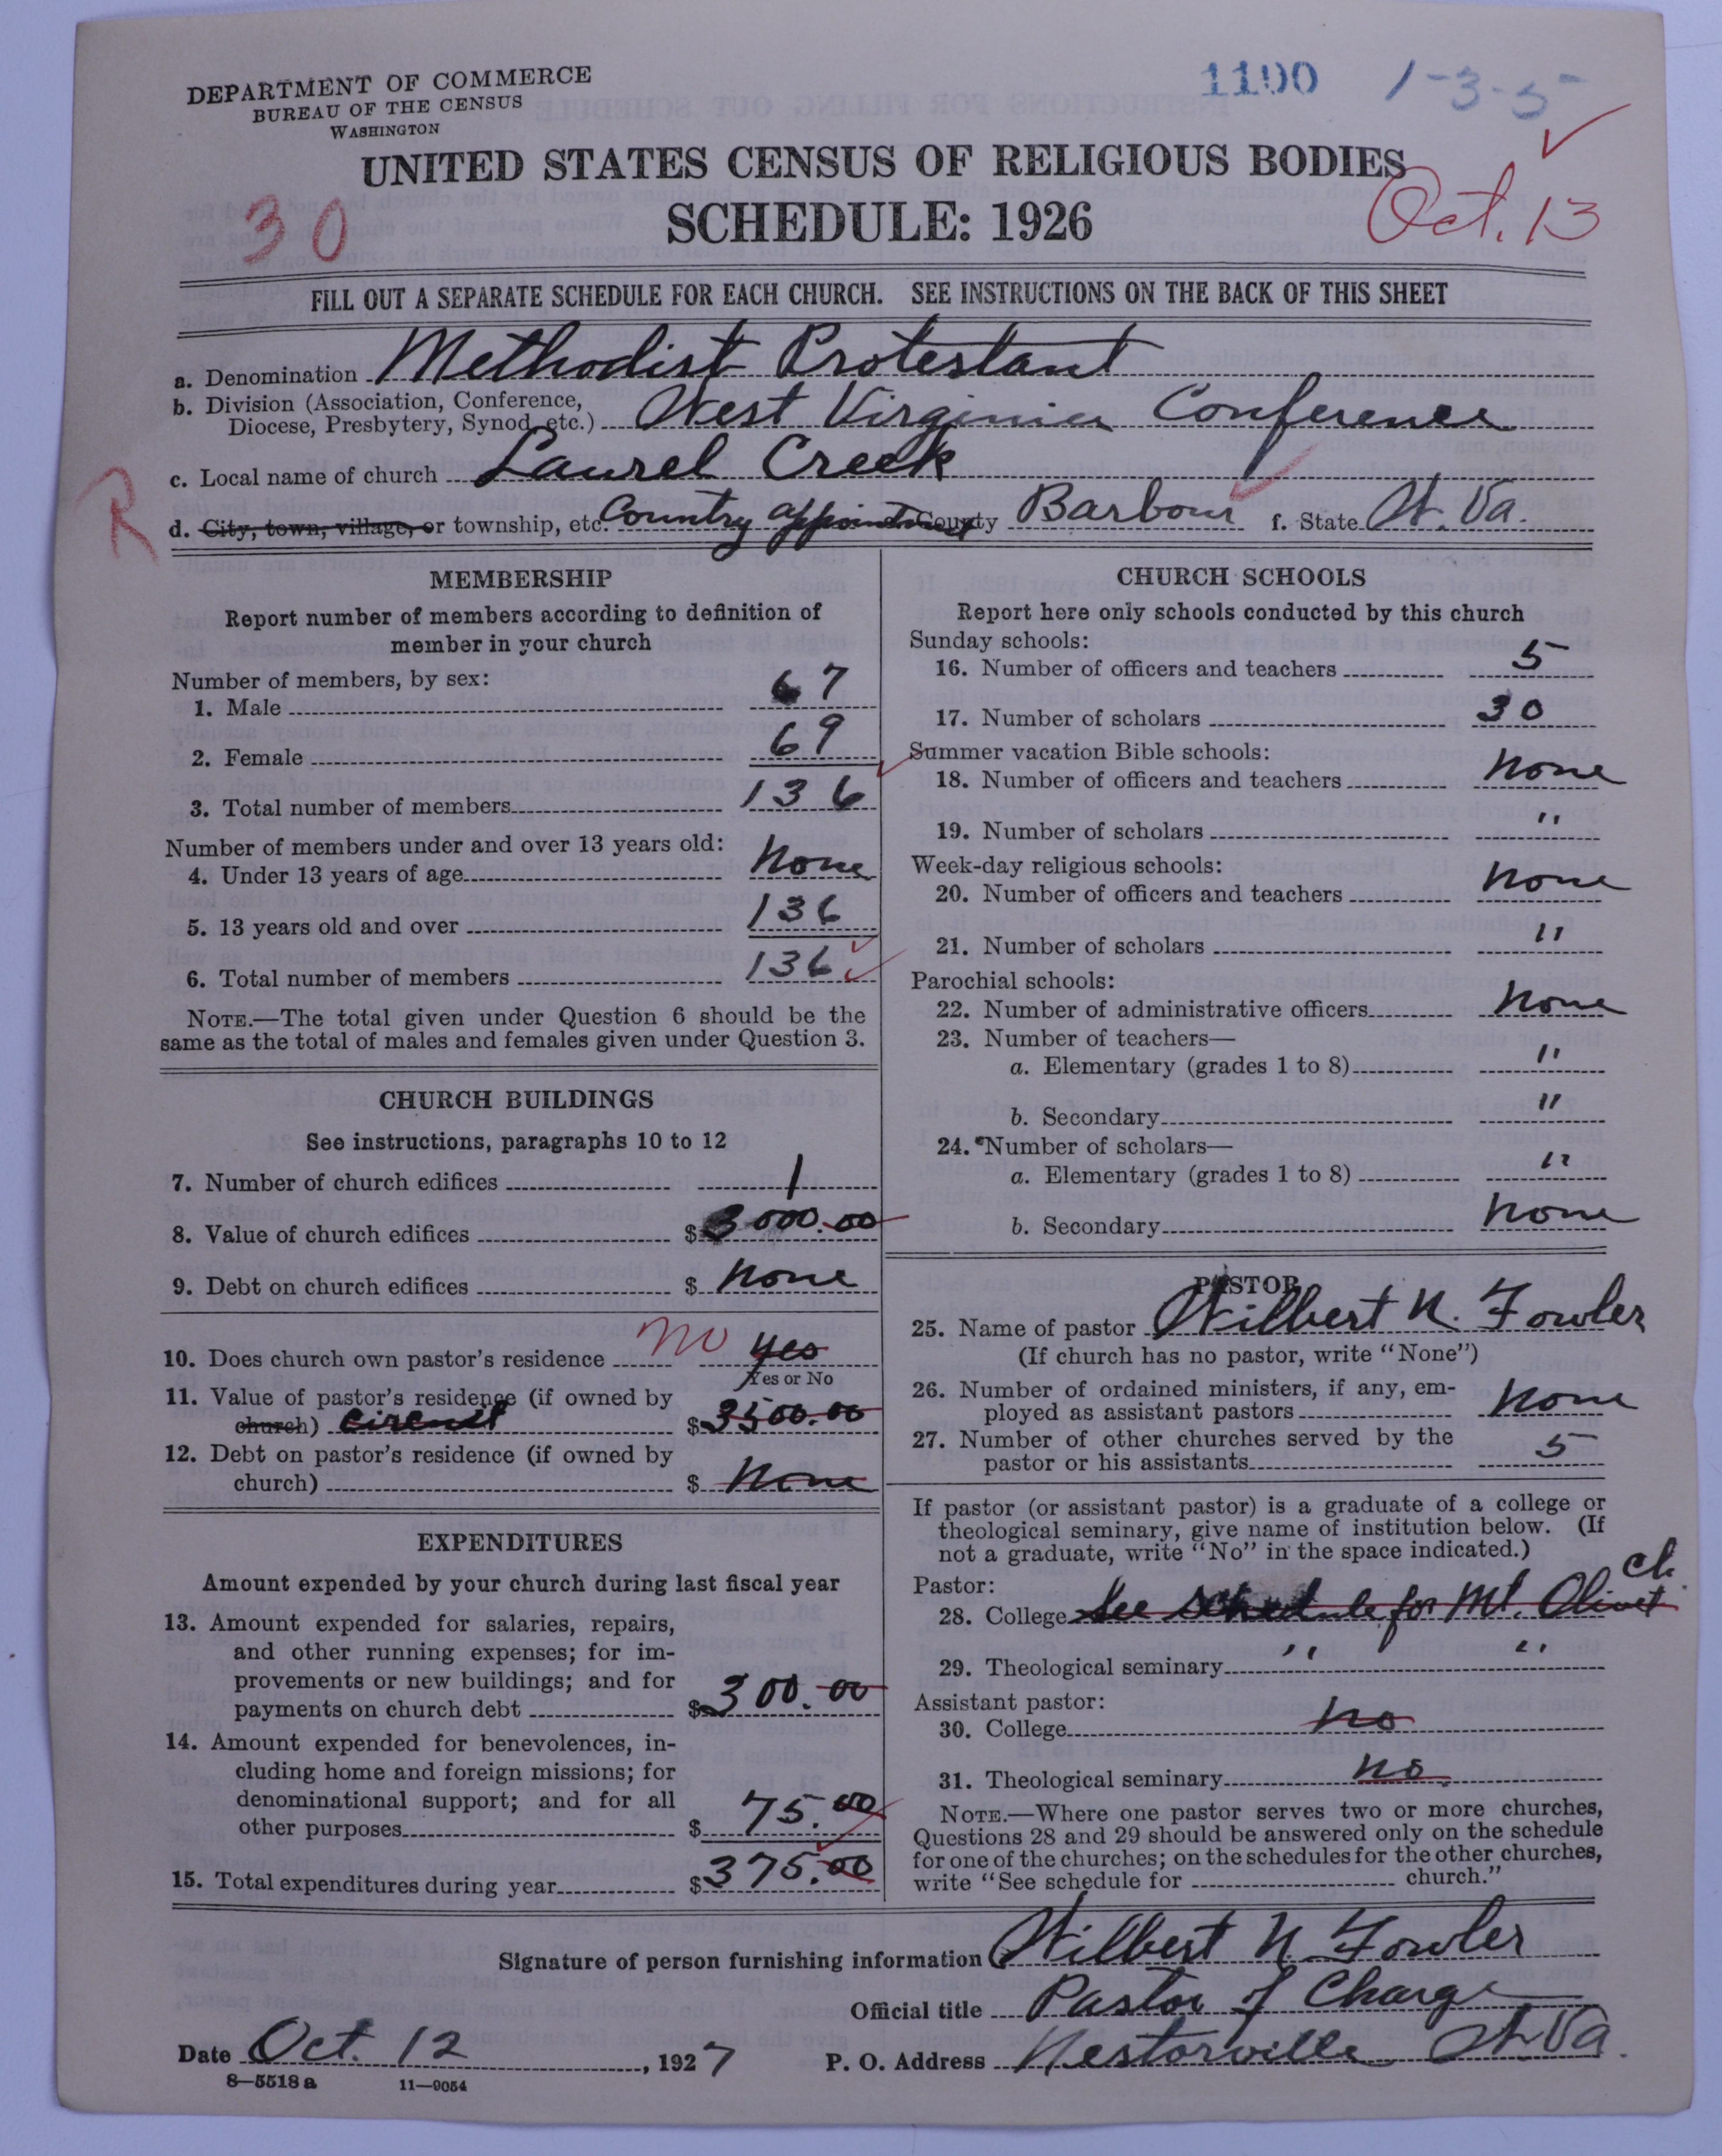 DEPARTMENT OF COMMERCE
BUREAU OF THE CENSUS
WASHINGTON
1100 1-3-5
UNITED STATES CENSUS OF RELIGIOUS BODIES
SCHEDULE: 1926
30
Oct. 13
FILL OUT A SEPARATE SCHEDULE FOR EACH CHURCH. SEE INSTRUCTIONS ON THE BACK OF THIS SHEET
a. Denomination Methodist Protestant
b. Division (Association, Conference, Diocese, Presbytery, Synod, etc.) West Virginia Conference
c. Local name of church Laurel Creek
R
d. City, town, village, or township, etc. Country appointment County Barbour f. State W. Va.
MEMBERSHIP
Report number of members according to definition of
member in your church
Number of members, by sex:
1. Male 67
2. Female 69
3. Total number of members 136
Number of members under and over 13 years old:
4. Under 13 years of age None
5. 13 years old and over 136
6. Total number of members 136
NOTE.—The total given under Question 6 should be the
same as the total of males and females given under Question 3.
CHURCH BUILDINGS
See instructions, paragraphs 10 to 12
7. Number of church edifices 1
8. Value of church edifices $3000.00
9. Debt on church edifices $ None
10. Does church own pastor's residence no yes
Yes or No
11. Value of pastor's residence (if owned by
church) circuit $3500.00
12. Debt on pastor's residence (if owned by
church) $ None
EXPENDITURES
Amount expended by your church during last fiscal year
13. Amount expended for salaries, repairs,
and other running expenses; for im-
provements or new buildings; and for
payments on church debt $300.00
14. Amount expended for benevolences, in-
cluding home and foreign missions; for
denominational support; and for all
other purposes $ 75.00
15. Total expenditures during year $375.00
CHURCH SCHOOLS
Report here only schools conducted by this church
Sunday schools:
16. Number of officers and teachers 5
17. Number of scholars 30
Summer vacation Bible schools:
18. Number of officers and teachers None
19. Number of scholars "
Week-day religious schools:
20. Number of officers and teachers None
21. Number of scholars "
Parochial schools:
22. Number of administrative officers None
23. Number of teachers—
a. Elementary (grades 1 to 8) "
b. Secondary "
24. Number of scholars—
a. Elementary (grades 1 to 8) "
b. Secondary None
PASTOR
25. Name of pastor Wilbert N. Fowler
(If church has no pastor, write "None")
26. Number of ordained ministers, if any, em-
ployed as assistant pastors None
27. Number of other churches served by the
pastor or his assistants 5
If pastor (or assistant pastor) is a graduate of a college or
theological seminary, give name of institution below. (If
not a graduate, write "No" in the space indicated.)
Pastor:
28. College See schedule for Mt. Olivet ch.
29. Theological seminary " "
Assistant pastor:
30. College No
31. Theological seminary No
NOTE.—Where one pastor serves two or more churches,
Questions 28 and 29 should be answered only on the schedule
for one of the churches; on the schedules for the other churches,
write "See schedule for church."
Signature of person furnishing information Wilbert N. Fowler
Official title Pastor of Charge
Date Oct. 12, 1927 P. O. Address Nestorville W. Va.
8—5518 a 11—9054